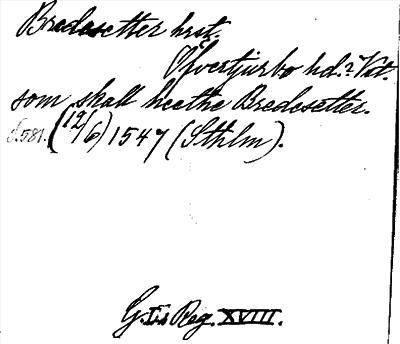 Bredesetter hrst.
Ofvertjurbo hd.? Vstm.
som skall heethe Bredesetter.
S. 581. (12/6) 1547 (Sthlm).
G. I:s Reg. XVIII.